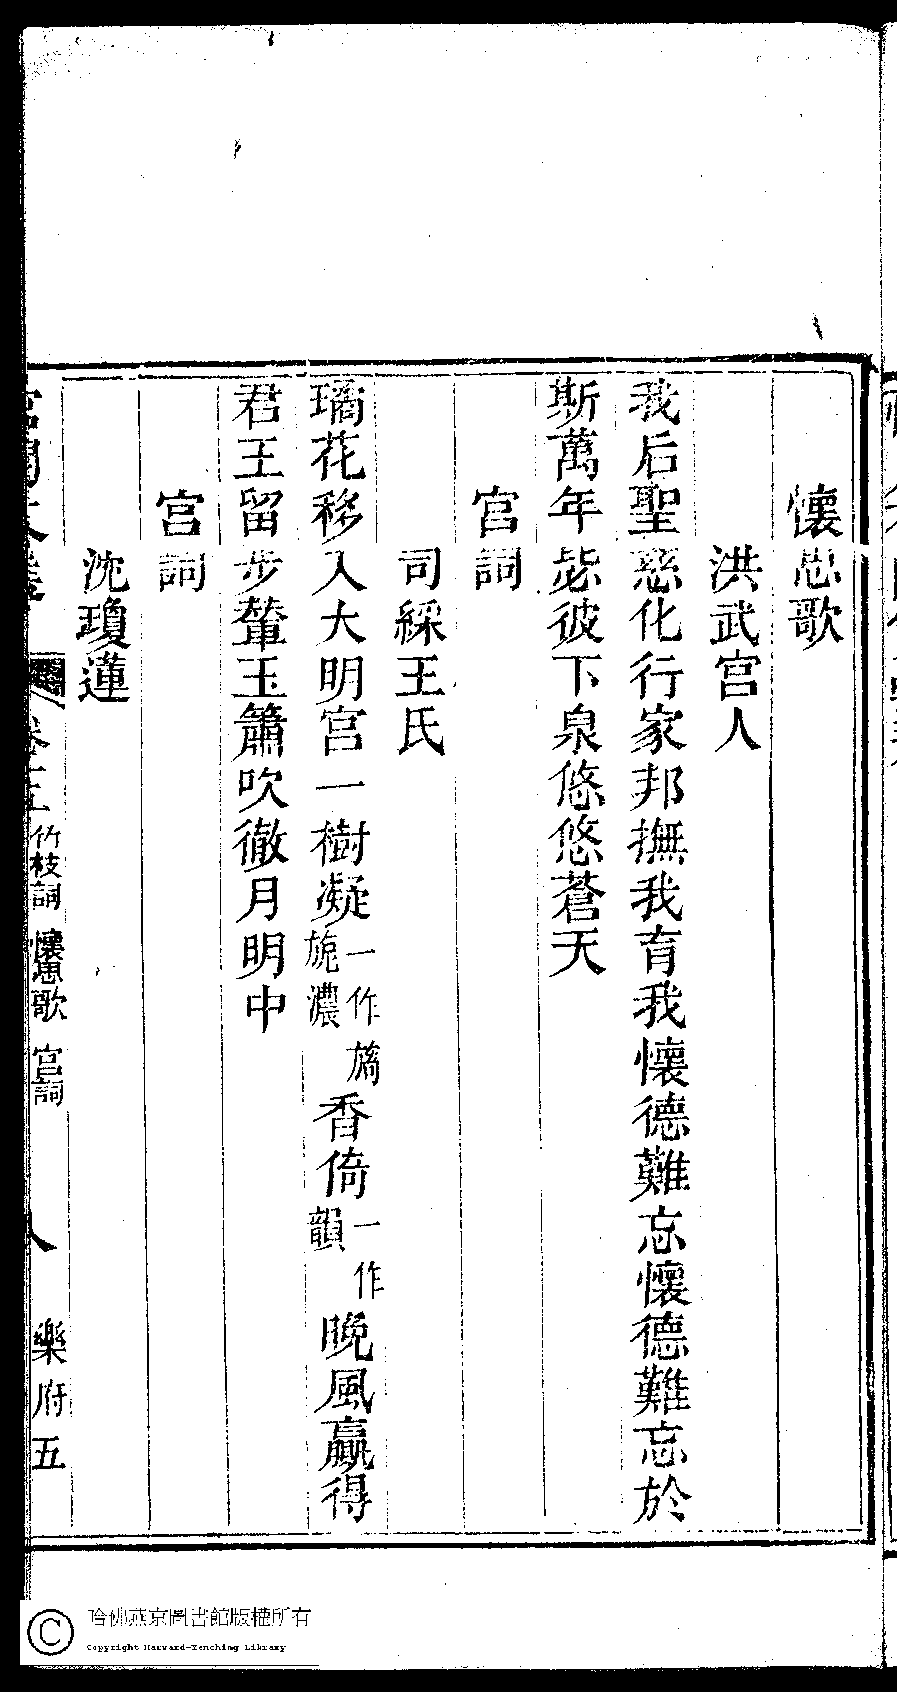 懷思歌
洪武宮人
我后聖慈化行家邦撫我育我懷德難忘懷德難忘於
斯萬年毖彼下泉悠悠蒼天
宮詞
司綵王氏
璚花移入大明宮一樹凝一作旖旎濃香倚一作韻晚風贏得
君王留步輦玉簫吹徹月明中
宮詞
沈瓊蓮
宮閨文選 卷 竹枝詞 懷思歌 宮詞 八 樂府五
哈佛燕京圖書館版權所有
Copyright Harvard-Yenching Library